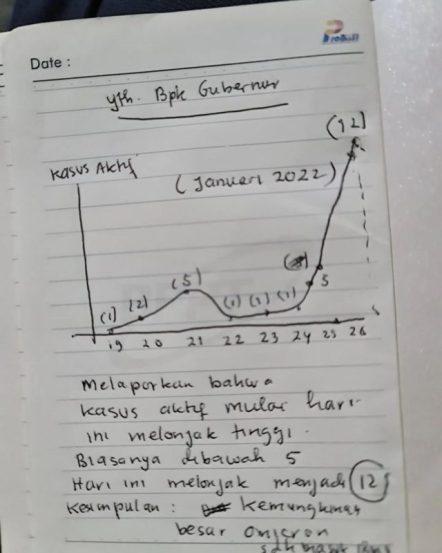 ProBall
Date :
yth. Bpk Gubernur
(12)
Kasus Aktif
(Januari 2022)
(1) (2) (5) (1) (1) (1) 5
19 20 21 22 23 24 25 26
Melaporkan bahwa
kasus aktif mulai hari
ini melonjak tinggi.
Biasanya dibawah 5
Hari ini melonjak menjadi 12
Kesimpulan : Kemungkinan
besar omicron